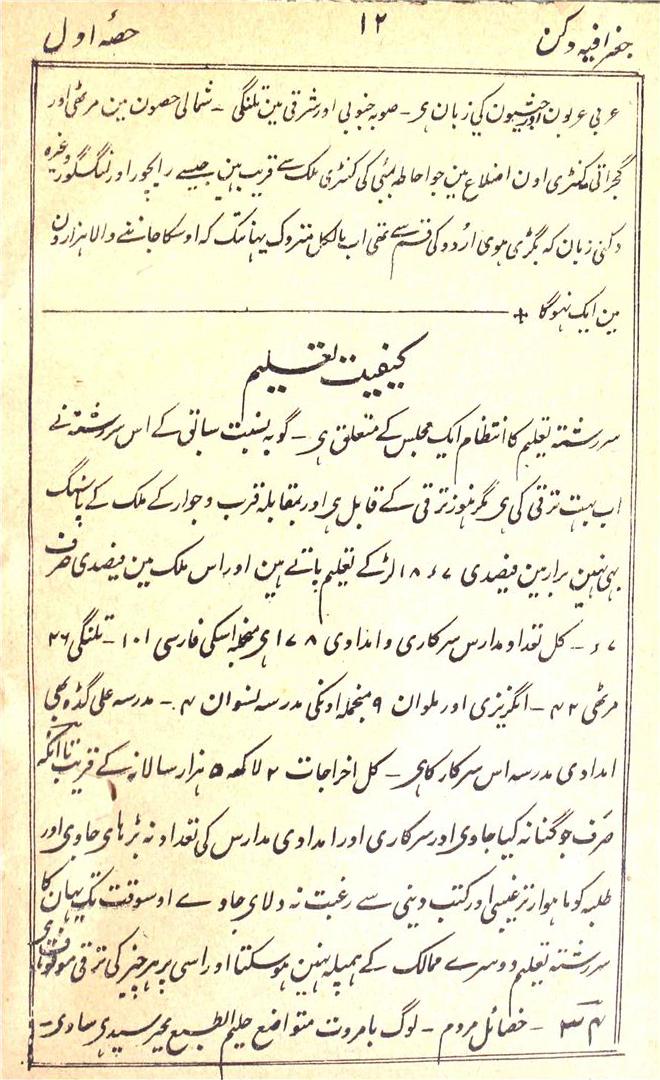 جغرافیہ دکن ۱۲ حصہ اول
عربی عربون اور حبشیون کی زبان ہی ۔ صوبہ جنوبی اور شرقی مین تلنگی ۔ شمالی حصون مین مرہٹی اور
گجراتی کنٹری اون اضلاع مین جو احاطہ بمبئی کی کنٹری ملک سے قریب ہین جیسے رایچور اور لنگسگور وغیرہ
دکنی زبان کہ بگڑی ہوی اردو کی قسم سے تھی اب بالکل متروک یہانتک کہ اوسکا جاننے والا ہزارون
مین ایک نہوگا +
کیفیت تعلیم
سررشتہ تعلیم کا انتظام ایک مجلس کے متعلق ہی ۔ گو بہ نسبت سابق کے اس سررشتہ نے
اب بہت ترقی کی ہی مگر ہنوز ترقی کے قابل ہی اور بمقابلہ قرب و جوار کے ملک کے پاسنگ
بہی نہین برار مین فیصدی ۶۷ ء ۱۸ لڑکے تعلیم پاتے ہین اور اس ملک مین فیصدی صرف
۶۷ ۔ کل تعداد مدارس سرکاری و امدادی ۱۷۸ ہی منجملہ اسکی فارسی ۱۰۱ ۔ تلنگی ۲۶
مرہٹی ۴۲ ۔ انگریزی اور ملوان ۹ منجملہ اونکی مدرسہ نسوان ۴ ۔ مدرسہ علی گڈہ بہی
امدادی مدرسہ اس سرکار کا ہی ۔ کل اخراجات ۲ لاکھ ۵ ہزار سالانہ کے قریب تا آنکہ
صرف جو گنا نہ کیا جاوی اور سرکاری اور امدادی مدارس کی تعداد نہ بڑہای جاوی اور
طلبہ کو ماہوار ترغیبی اور کتب دینی سے رغبت نہ دلای جاوے اوسوقت تک یہان کا
سررشتہ تعلیم دوسرے ممالک کے ہمپلہ نہین ہوسکتا اور اسی پر ہر چیز کی ترقی موقوف ہی
۔ خصائل مردم ۔ لوگ بامروت متواضع حلیم الطبع مخیر سیدہی سادی ۔